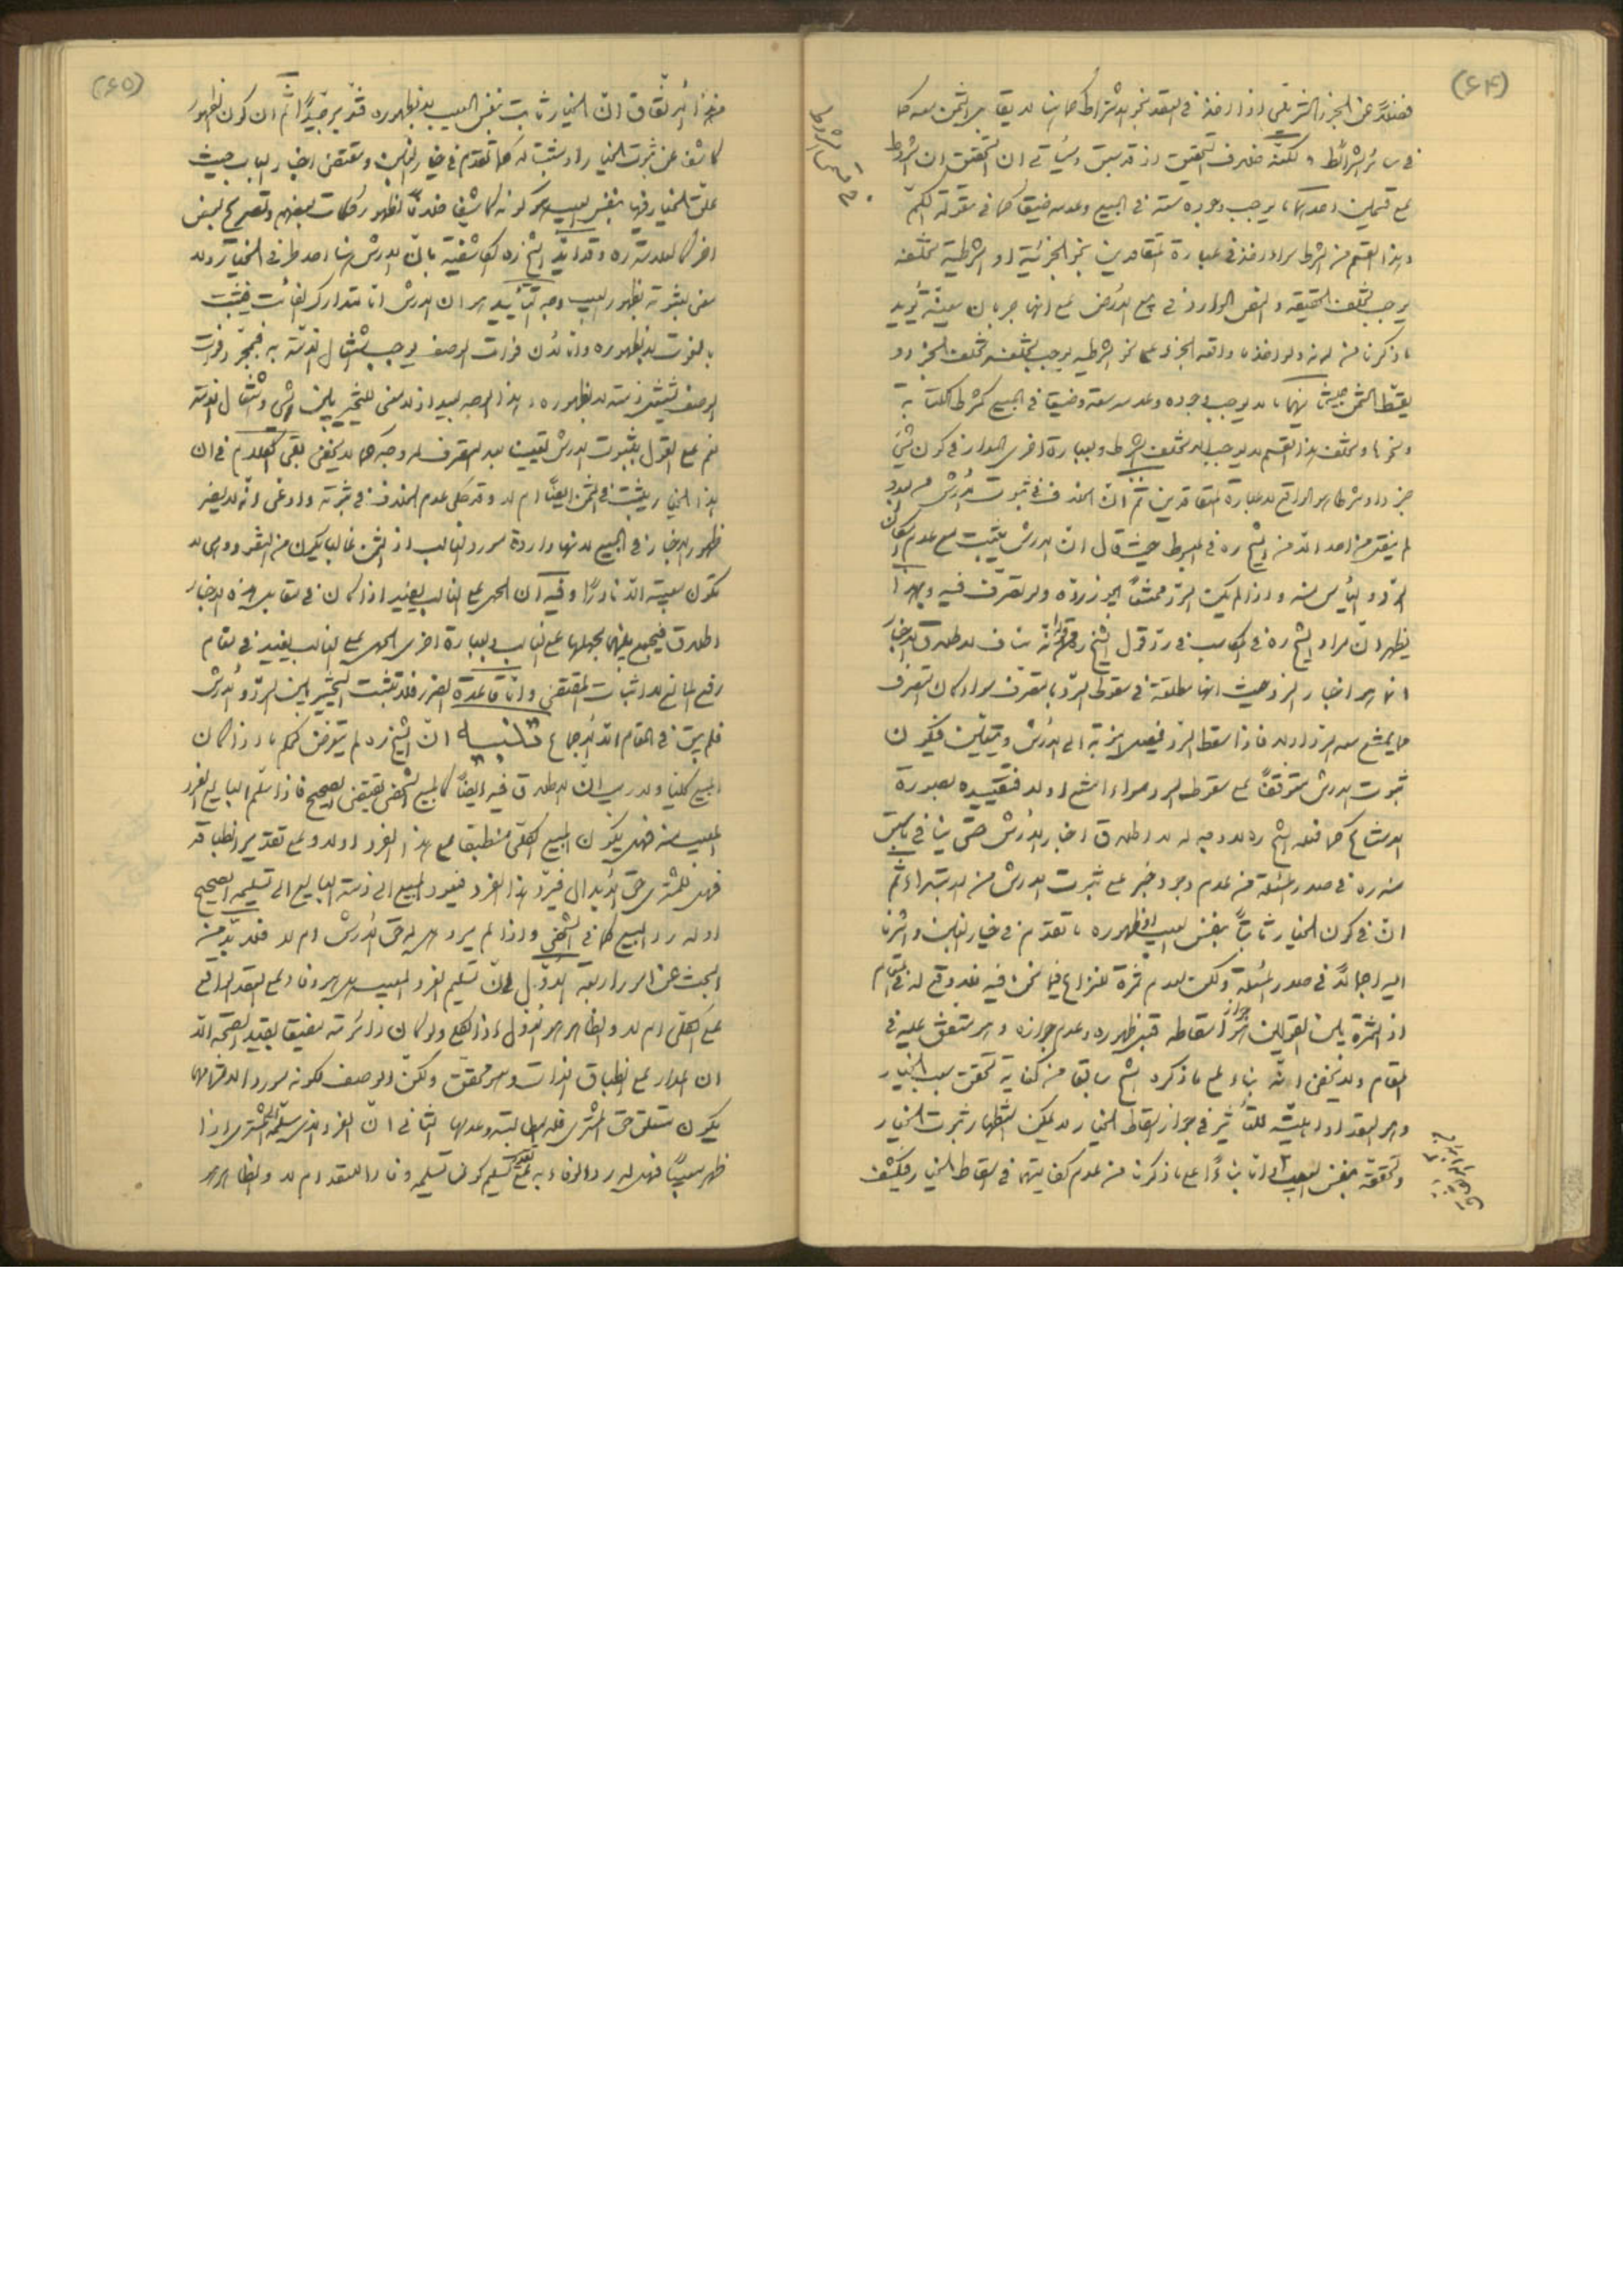 (٦٤)
فضلاً عن الجزء التركيبي اذا اخذ في العقد بنحو الاشتراط كما انها لا يقابل الثمن معه كما
في سائر الشرائط ولكنه خلاف التحقيق اذ قد سبق وسيأتي ان التحقيق ان الشروط
على قسمين احدهما ما يوجب وجوده سعة في المبيع وعدمه ضيقا كما في مقولة الكم
وهذا القسم من الشرط سواء اخذ في عبارة المتعاقدين بنحو الجزئية او الشرطية تخلفه
يوجب تخلف الحقيقة والنص الوارد في بيع الأرض على انها جربان معينة يؤيد
ما ذكرنا من انه ولو اخذ ما واقعه الجزء على نحو الشرطية يوجب تخلفه تخلف الجزء و
يقسط الثمن حينئذ ثانيهما ما لا يوجب وجوده وعدمه سعة وضيقا في المبيع كشرط الكتابة
ونحوها وتخلف هذا القسم لا يوجب الا تخلف الشرط وبعبارة اخرى المدار في كون شيء
جزءا او شرطا هو الواقع لا عبارة المتعاقدين ثم انّ الخلاف في ثبوت الأرش
لم ينقل من احد الا من الشيخ ره في المبسوط حيث قال ان الارش يثبت مع عدم امكان
الرد واليأس منه واذا لم يكن الرد ممتنعاً يجوز ردّه ولو تصرف فيه وبهذا
يظهر انّ مراد الشيخ ره في المكاسب في ردّ قول الشيخ ره انّه مناف لاطلاق الاخبار
انما هو اخبار الرد حيث انها مطلقة في سقوط الردّ بالتصرف سواء كان التصرف
مما يمتنع معه الرد او لا فاذا سقط الرد فيصل النوبة الى الأرش ويتعيّن فيكون
ثبوت الارش متوقفاً على سقوط الرد سواء امتنع او لا فتقييده بصورة
الامتناع كما فعله الشيخ ره لا وجه له لا اطلاق اخبار الأرش حتى ينافي ما سبق
منه ره في صدر المسئلة من عدم وجود خبر على ثبوت الارش من الابتداء ثم
انّ في كون الخيار ثابتاً بنفس العيب او ظهوره ما تقدم في خيار الغبن واشرنا
اليه اجمالاً في صدر المسئلة ولكن لعدم ثمرة للنزاع فيما نحن فيه فلا وقع له في المقام
اذ الثمرة بين القولين جواز اسقاطه قبل ظهوره وعدم جوازه وهو متفق عليه في
المقام ولا يخفى انّه بناء على ما ذكره الشيخ سابقا من كفاية تحقق سبب الخيار
وهو العقد او اهليته للتأثير في جواز اسقاط الخيار لا يمكن استظهار ثبوت الخيار
وتحققه بنفس العيب الا انا بناءً على ما ذكرنا من عدم كفايتهما في اسقاط الخيار فيكشف
(٦٥)
من هذا الاتفاق انّ الخيار ثابت بنفس العيب لا بظهوره فتدبر جيداً ثم ان كون الظهور
كاشفا عن ثبوت الخيار او مثبتا له كما تقدم في خيار الغبن ومقتضى اخبار الباب حيث
علق الخيار فيها بنفس العيب هو كونه كاشفا خلافاً لظهور كلمات بعضهم وتصريح بعض
اخر كالعلامة ره وقد ايّد الشيخ ره الكاشفية بانّ الارش هنا احد طرفي الخيار ولا
معنى لثبوته بظهور العيب وجه التأييد هو ان الارش انما لتدارك الفائت فيثبت
بالفوت لا بظهوره وانما لأن فوات الوصف يوجب اشتغال الذمة به فبمجرد فوات
الوصف تشتغل ذمته لا بظهوره وهذا الوجه بعيد اذ لا معنى للتخيير بين شيء واشتغال الذمة
نعم على القول بثبوت الارش تعيينا بعد التصرف له وجه كما لا يخفى بقي الكلام في ان
هذا الخيار يثبت في الثمن ايضاً ام لا وقد حكى عدم الخلاف في ثبوته وادعى انّه لا يضر
ظهور الاخبار في المبيع لانها واردة مورد الغالب اذ الثمن غالبا يكون من النقود وهي لا
تكون معيبة الا نادراً وفيه ان الحمل على الغالب يفيد اذا كان في مقابل هذه الاخبار
اطلاق فيجمع بينهما بحملها على الغالب وبعبارة اخرى الحمل على الغالب يفيد في مقام
رفع المانع لا اثبات المقتضى وانّ قاعدة الضرر فلا تثبت التخيير بين الرد والأرش
فلم يبق في المقام الا الاجماع تنبيه انّ الشيخ ره لم يتعرض لحكم ما اذا كان
المبيع كليا ولا ريب انّ الاطلاق فيه ايضاً كالمبيع الشخصي يقتضي الصحيح فاذا سلّم البايع الفرد
المعيب منه فهل يكون المبيع الكلي منطبقا على هذا الفرد او لا وعلى تقدير انطباقه
فهل للمشتري حق الابدال فيردّ هذا الفرد فيعود المبيع الى ذمة البايع الى تسليمه الصحيح
او له رد المبيع كما في الشخصي واذا لم يرد هل له حق الأرش ام لا فلا بدّ من
البحث عن امور اربعة الاوّل في انّ تسليم الفرد المعيب هل هو وفاء على العقد الواقع
على الكلي ام لا والظاهر هو الاول اذ الكلي ولو كان دائرته مضيقا بقيد الصحة الا
ان المدار على انطباق الذات وهو محقق ولكن الوصف لكونه مورد الالتزامهما
يكون متعلق حق المشتري فله المطالبة وعدمها الثاني انّ الفرد الذي سلّمه المشتري اذا
ظهر معيباً فهل له رد الوفاء به بمعنى تسليم كون تسليمه وفاءا للعقد ام لا والظاهر هو